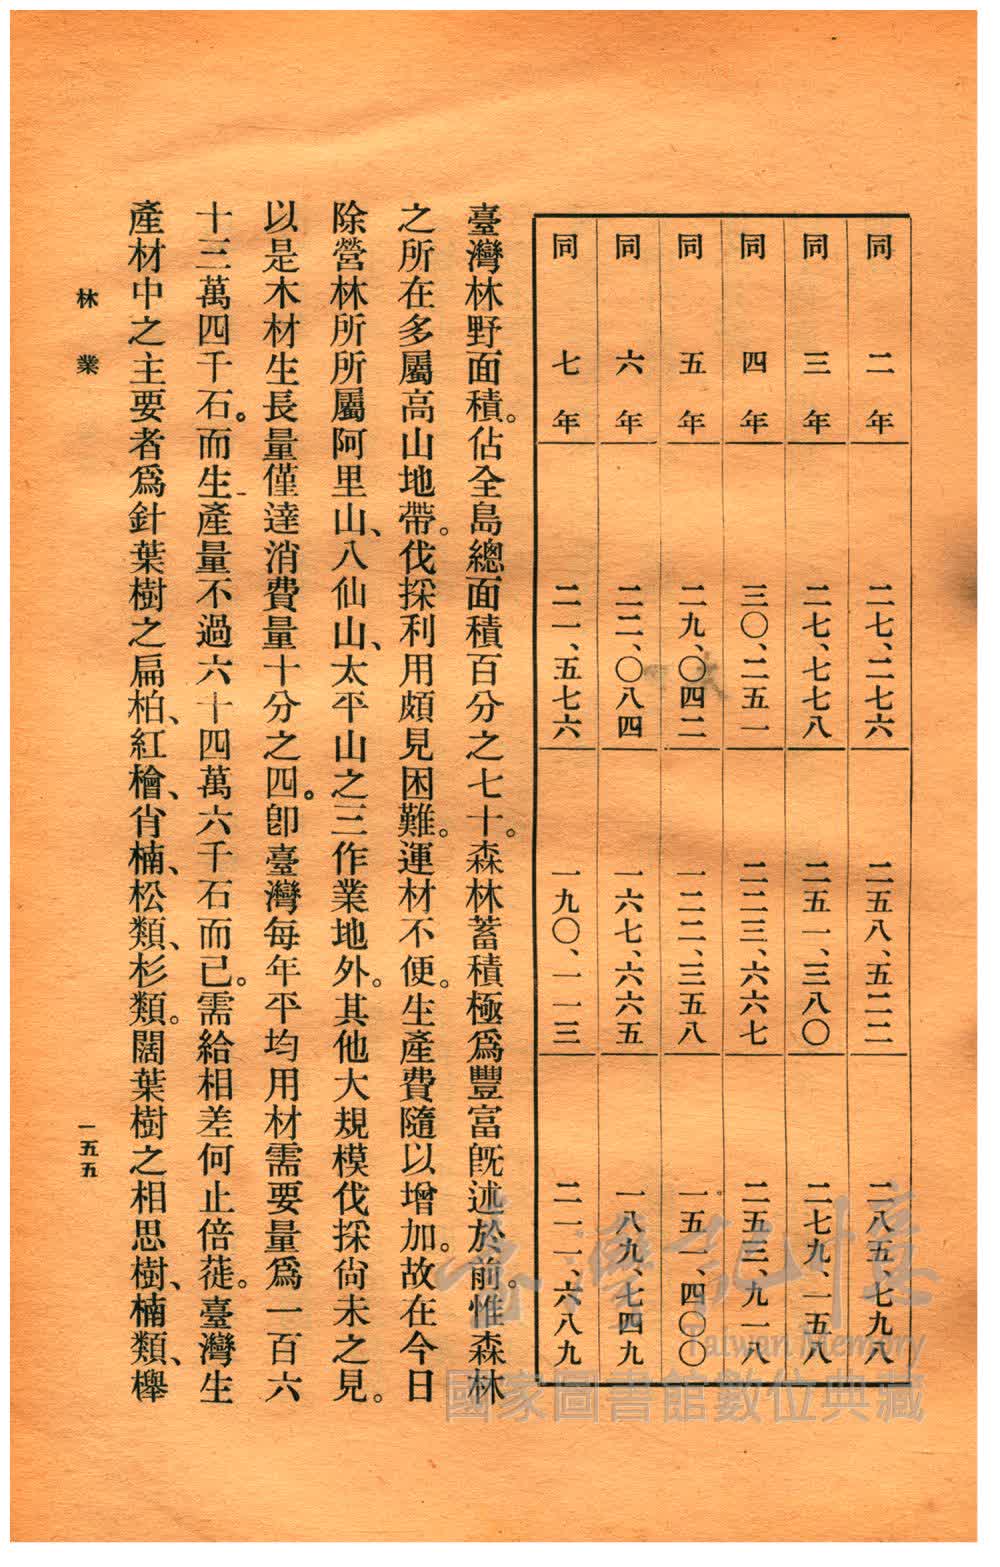 同二年 二七、二七六 二五八、五二二 二八五、七九八
同三年 二七、七七八 二五一、三八〇 二七九、一五八
同四年 三〇、二五一 二二三、六六七 二五三、九一八
同五年 二九、〇四二 一二二、三五八 一五一、四〇〇
同六年 二二、〇八四 一六七、六六五 一八九、七四九
同七年 二一、五七六 一九〇、一一三 二一一、六八九
臺灣林野面積。佔全島總面積百分之七十。森林蓄積極爲豐富旣述於前。惟森林
之所在多屬高山地帶。伐採利用頗見困難。運材不便。生產費隨以增加。故在今日
除營林所所屬阿里山、八仙山、太平山之三作業地外。其他大規模伐採尙未之見。
以是木材生長量僅達消費量十分之四。卽臺灣每年平均用材需要量爲一百六
十三萬四千石。而生產量不過六十四萬六千石而已。需給相差何止倍蓰。臺灣生
產材中之主要者爲針葉樹之扁柏、紅檜、肖楠、松類、杉類。闊葉樹之相思樹、楠類、欅
林業
一五五
臺灣記憶
Taiwan Memory
國家圖書館數位典藏